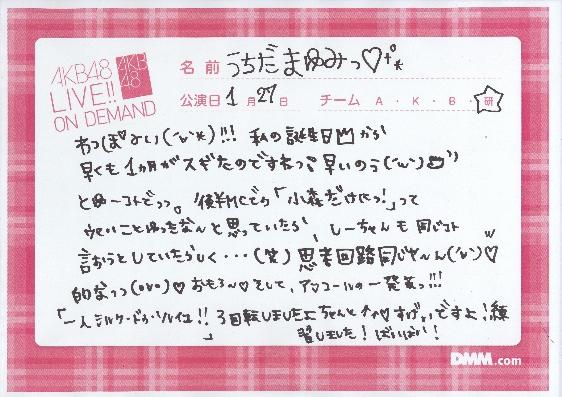 AKB48
LIVE!!
ON DEMAND
AKB
48
名前 うちだまゆみっ♡
公演日 1月27日 チーム A・K・B・研
わっぽぁぃ(´v`*)!!! 私の誕生日から
早くも1カ月がスギたのですねっ 早いのう(´v`)
とゆーコトでっっ。後半MCでの「小森だけにっ!」って
うまいことゆったなんと思っていたら、しーちゃんも同じコト
言おうとしていたらしく・・・(笑)思考回路同じや〜ん(´v`)♡
的なっっ(ovo)♡おもろ〜♡そして、アンコールの一発芸っ!!!
「一人シルク・ドゥ・ソレイユ!!」3回転しましたよちゃんと↑↑♡すげぃですよ!練
習しました!ばいばい!
DMM.com